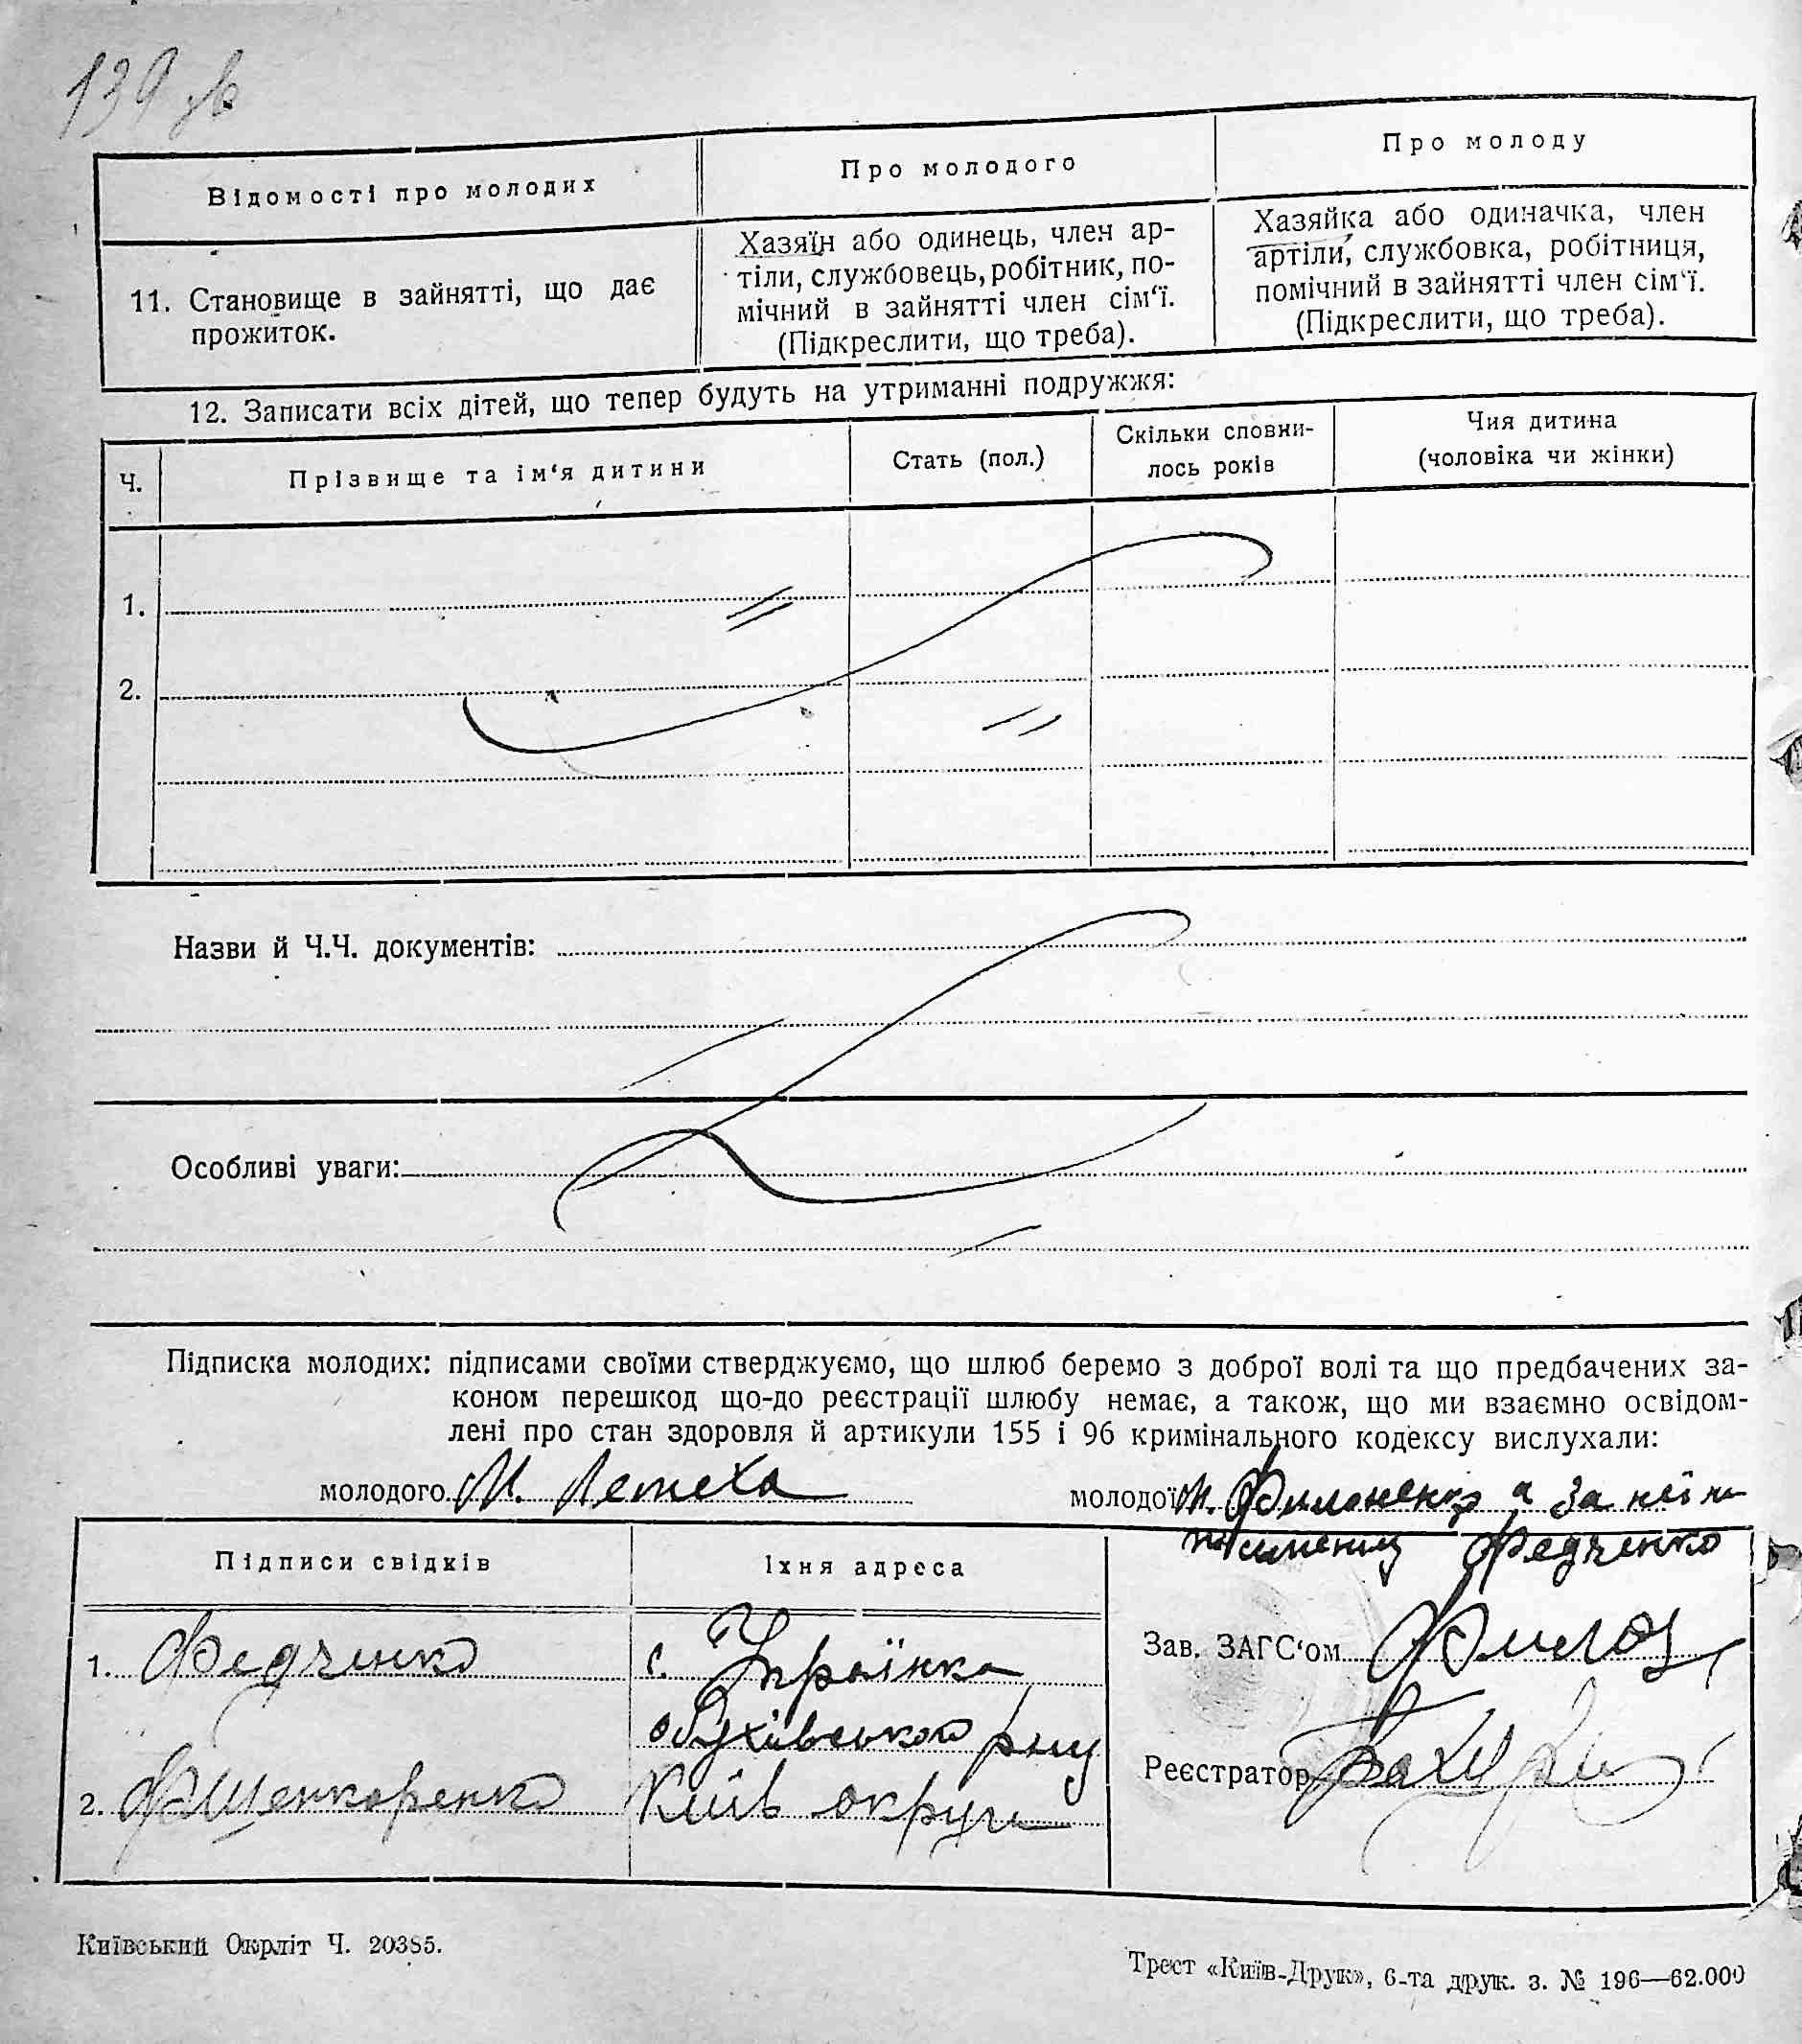 139 зв
Відомості про молодих
Про молодого
Про молоду
11. Становище в зайнятті, що дає
прожиток.
Хазяїн або одинець, член ар-
тіли, службовець, робітник, по-
мічний в зайнятті член сім'ї.
(Підкреслити, що треба).
Хазяйка або одиначка, член
артіли, службовка, робітниця,
помічний в зайнятті член сім'ї.
(Підкреслити, що треба).
12. Записати всіх дітей, що тепер будуть на утриманні подружжя:
Ч.
Прізвище та ім'я дитини
Стать (пол.)
Скільки сповни-
лось років
Чия дитина
(чоловіка чи жінки)
1.
2.
Назви й Ч.Ч. документів:
Особливі уваги:
Підписка молодих: підписами своїми стверджуємо, що шлюб беремо з доброї волі та що предбачених за-
коном перешкод що-до реєстрації шлюбу немає, а також, що ми взаємно освідом-
лені про стан здоровля й артикули 155 і 96 кримінального кодексу вислухали:
молодого М. Летеха
молодої Филоненко а за неї
Федченко
Підписи свідків
Їхня адреса
1. Федченко
с. Українка
Обухівського р-ну
2.
Київ округи
Зав. ЗАГС'ом
Реєстратор
Київський Окрліт Ч. 20385.
Трест «Київ-Друк», 6-та друк. з. № 196—62.000